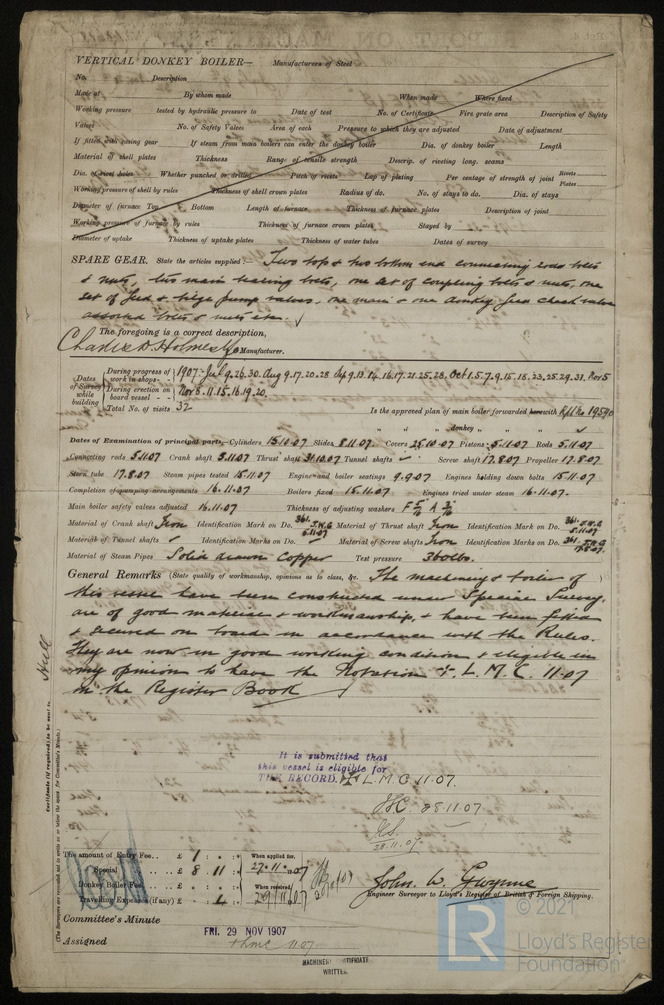 VERTICAL DONKEY BOILER— Manufacturers of Steel
No. Description
Made at By whom made When made Where fixed
Working pressure tested by hydraulic pressure to Date of test No. of Certificate Fire grate area Description of Safety
Valves No. of Safety Valves Area of each Pressure to which they are adjusted Date of adjustment
If fitted with easing gear If steam from main boilers can enter the donkey boiler Dia. of donkey boiler Length
Material of shell plates Thickness Range of tensile strength Descrip. of riveting long. seams
Dia. of rivet holes Whether punched or drilled Pitch of rivets Lap of plating Per centage of strength of joint Rivets Plates
Working pressure of shell by rules Thickness of shell crown plates Radius of do. No. of stays to do. Dia. of stays
Diameter of furnace Top Bottom Length of furnace Thickness of furnace plates Description of joint
Working pressure of furnace by rules Thickness of furnace crown plates Stayed by
Diameter of uptake Thickness of uptake plates Thickness of water tubes Dates of survey
SPARE GEAR. State the articles supplied:— Two top & two bottom end connecting rods bolts
& nuts, two main bearing bolts, one set of coupling bolts & nuts, one
set of feed & bilge pump valves, one main & one donkey feed check valve
assorted bolts & nuts etc. ✓
The foregoing is a correct description,
Charles D. Holmes & Co Manufacturer.
Dates of Survey while building
During progress of work in shops - - 1907: Jul 9. 26. 30. Aug 9. 17. 20. 28 Sep 9. 13. 14. 16. 17. 21. 25. 28. Oct 1. 5. 7. 9. 15. 18. 23. 25. 29. 31. Nov 5
During erection on board vessel - - - Nov 8. 11. 15. 16. 19. 20.
Total No. of visits 32 Is the approved plan of main boiler forwarded herewith Rpt No 19590
" " " donkey " " " ✓
Dates of Examination of principal parts—Cylinders 15.10.07 Slides 8.11.07. Covers 25.10.07 Pistons 5.11.07 Rods 5.11.07.
Connecting rods 5.11.07 Crank shaft 5.11.07 Thrust shaft 31.10.07 Tunnel shafts ✓ Screw shaft 17.8.07 Propeller 17.8.07
Stern tube 17.8.07 Steam pipes tested 15.11.07 Engine and boiler seatings 9.9.07 Engines holding down bolts 15.11.07
Completion of pumping arrangements 16.11.07 Boilers fixed 15.11.07 Engines tried under steam 16.11.07.
Main boiler safety valves adjusted 16.11.07 Thickness of adjusting washers
Material of Crank shaft Iron Identification Mark on Do. 361. J.W.G 5.11.07 Material of Thrust shaft Iron Identification Mark on Do. 361. J.W.G 5.11.07
Material of Tunnel shafts ✓ Identification Marks on Do. ✓ Material of Screw shafts Iron Identification Marks on Do. 361. J.W.G 17.8.07.
Material of Steam Pipes Solid drawn Copper Test pressure 360 lbs.
General Remarks (State quality of workmanship, opinions as to class, &c. The machinery & boiler of
this vessel have been constructed under Special Survey.
are of good material & workmanship, & have been fitted
& secured on board in accordance with the Rules.
They are now in good working condition & eligible in
my opinion to have the Notation + L. M. C. 11.07
in the Register Book
Hull
Certificate (if required) to be sent to
(The Surveyors are requested not to write on or below the space for Committee's Minute.)
It is submitted that
this vessel is eligible for
THE RECORD. + L.M.C 11.07.
28.11.07
28.11.07
The amount of Entry Fee.. £ 1 : : When applied for,
Special .. .. £ 8 . 11 : 27.11.1907
Donkey Boiler Fee .. .. £ : : When received,
Travelling Expenses (if any) £ : 4 : 29/11/07
John W. Gwynne
Engineer Surveyor to Lloyd's Register of British & Foreign Shipping.
Committee's Minute
FRI. 29 NOV 1907
Assigned + LMC 11.07
MACHINERY CERTIFICATE
WRITTEN.
© 2021
LR
Lloyd's Register
Foundation